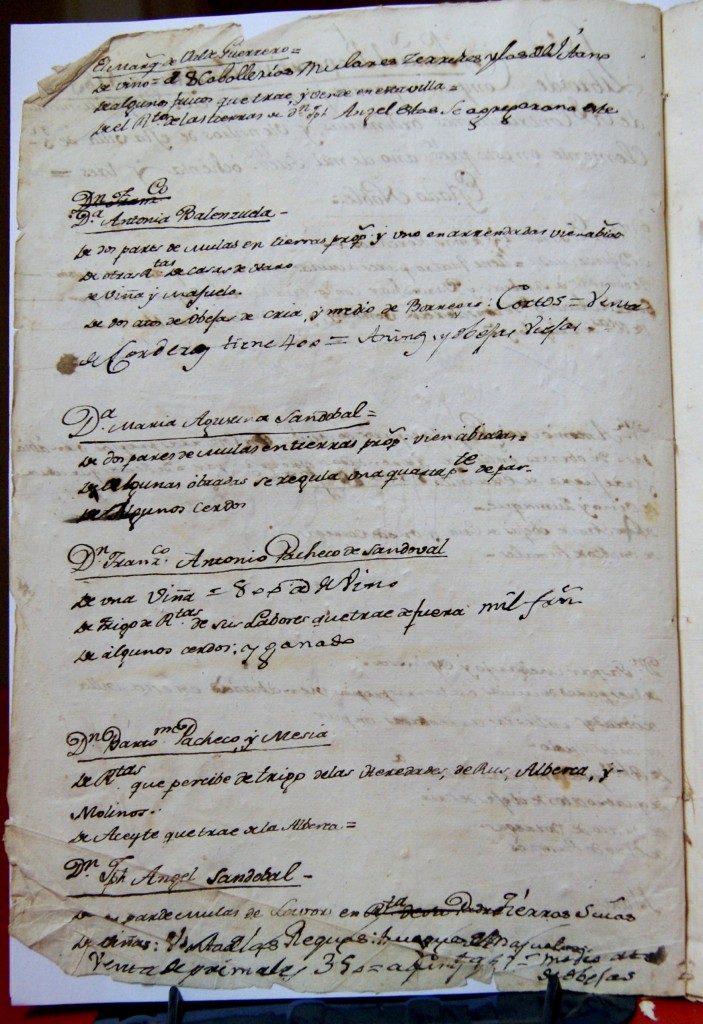 El Marq. de Valde Guerrero =
de vino = de 8 Caballerias Mulares Zerreñas y los del
de algunos frutos que trae y vende en esta villa =
de el Rta de las tierras de Dn Jph Angel estos se agreparan a este
Dn Franco
Da Antonia Balenzuela -
de dos pares de Mulas en tierras prop. y uno en arrendadas vien abias
de otras Rtas de Casas de Haro
de Viña y Majuelo.
de dos atos de Obejas de Cria, y medio de Borregos: Cortos = Venta
de Corderos tiene 400 = Aning. y obejas Viejas
Da Maria Agustina Sandobal =
de dos pares de Mulas en tierras prop. vien abiadas =
de algunas obradas se regula una quarta pte de par.
de algunos cerdos
Dn Franco Antonio Pacheco de Sandoval
de una Viña = 800 @ de Vino
de trigo de Rtas de sus Labores que trae de fuera mil fan
de algunos cerdos; y ganado
Dn Barme Pacheco, y Mesia
de Rtas que percibe de trigo de las Heredades, de Rus, Alberca, y
Molinos.
de Aceyte que trae de la Alberca =
Dn Jph Angel Sandobal -
de par de Mulas de Lavor en Rta Tierras Suias
de Viñas:
Venta de primales 350 = medio ato
de Obejas